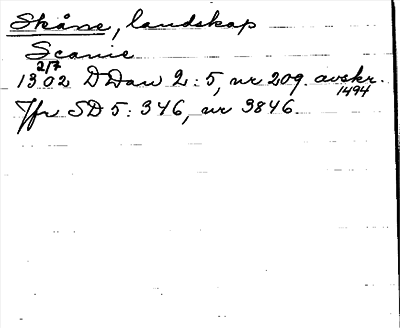 Skåne, landskap
Scanie
1302 2/7 DDan 2:5, nr 209. avskr. 1494
Jfr SD 5:346, nr 3846.